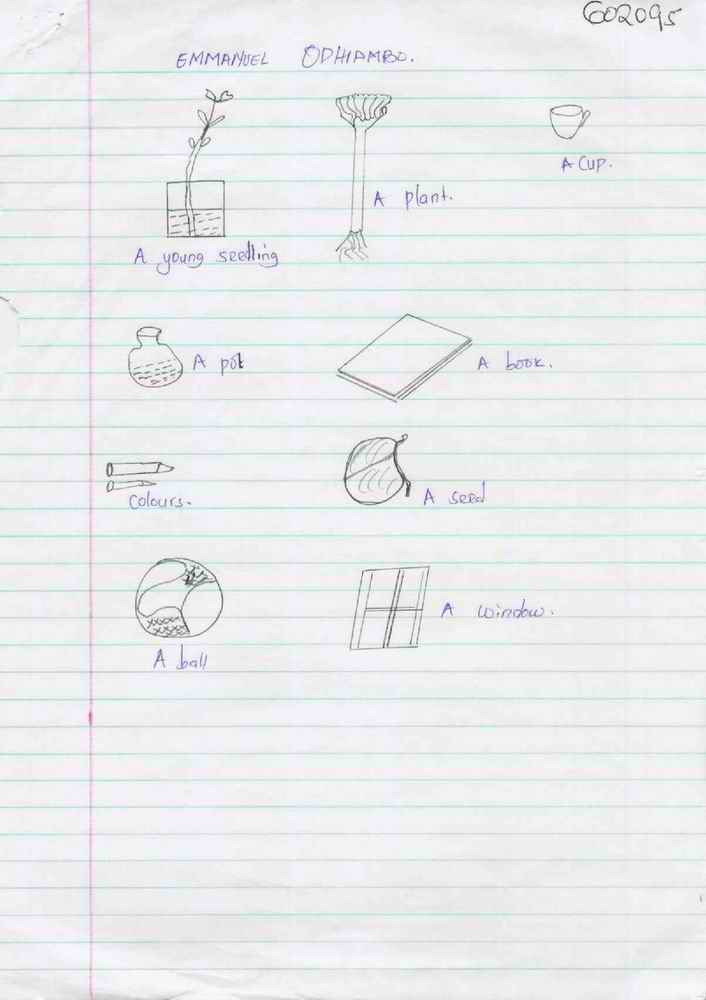 602095
EMMANUEL ODHIAMBO.
A cup.
A plant.
A young seedling
A pot
A book.
Colours.
A seed
A window.
A ball